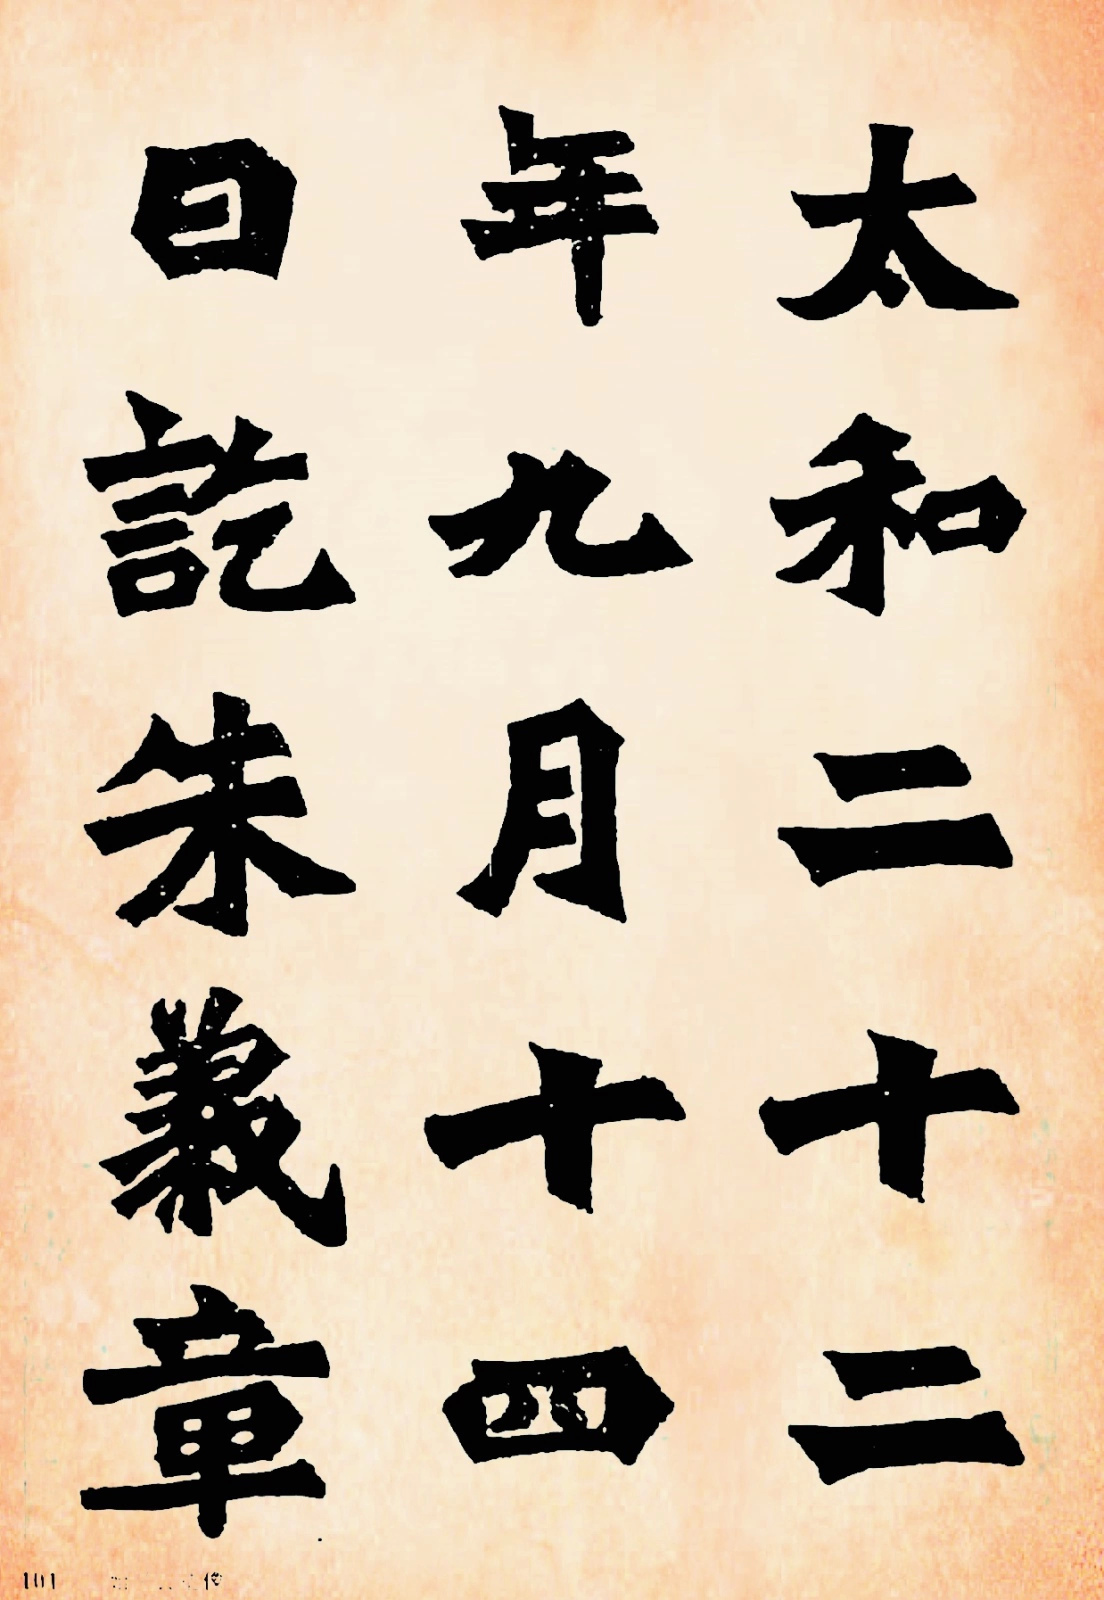 太和二十二
年九月十四
日訖朱義章
101